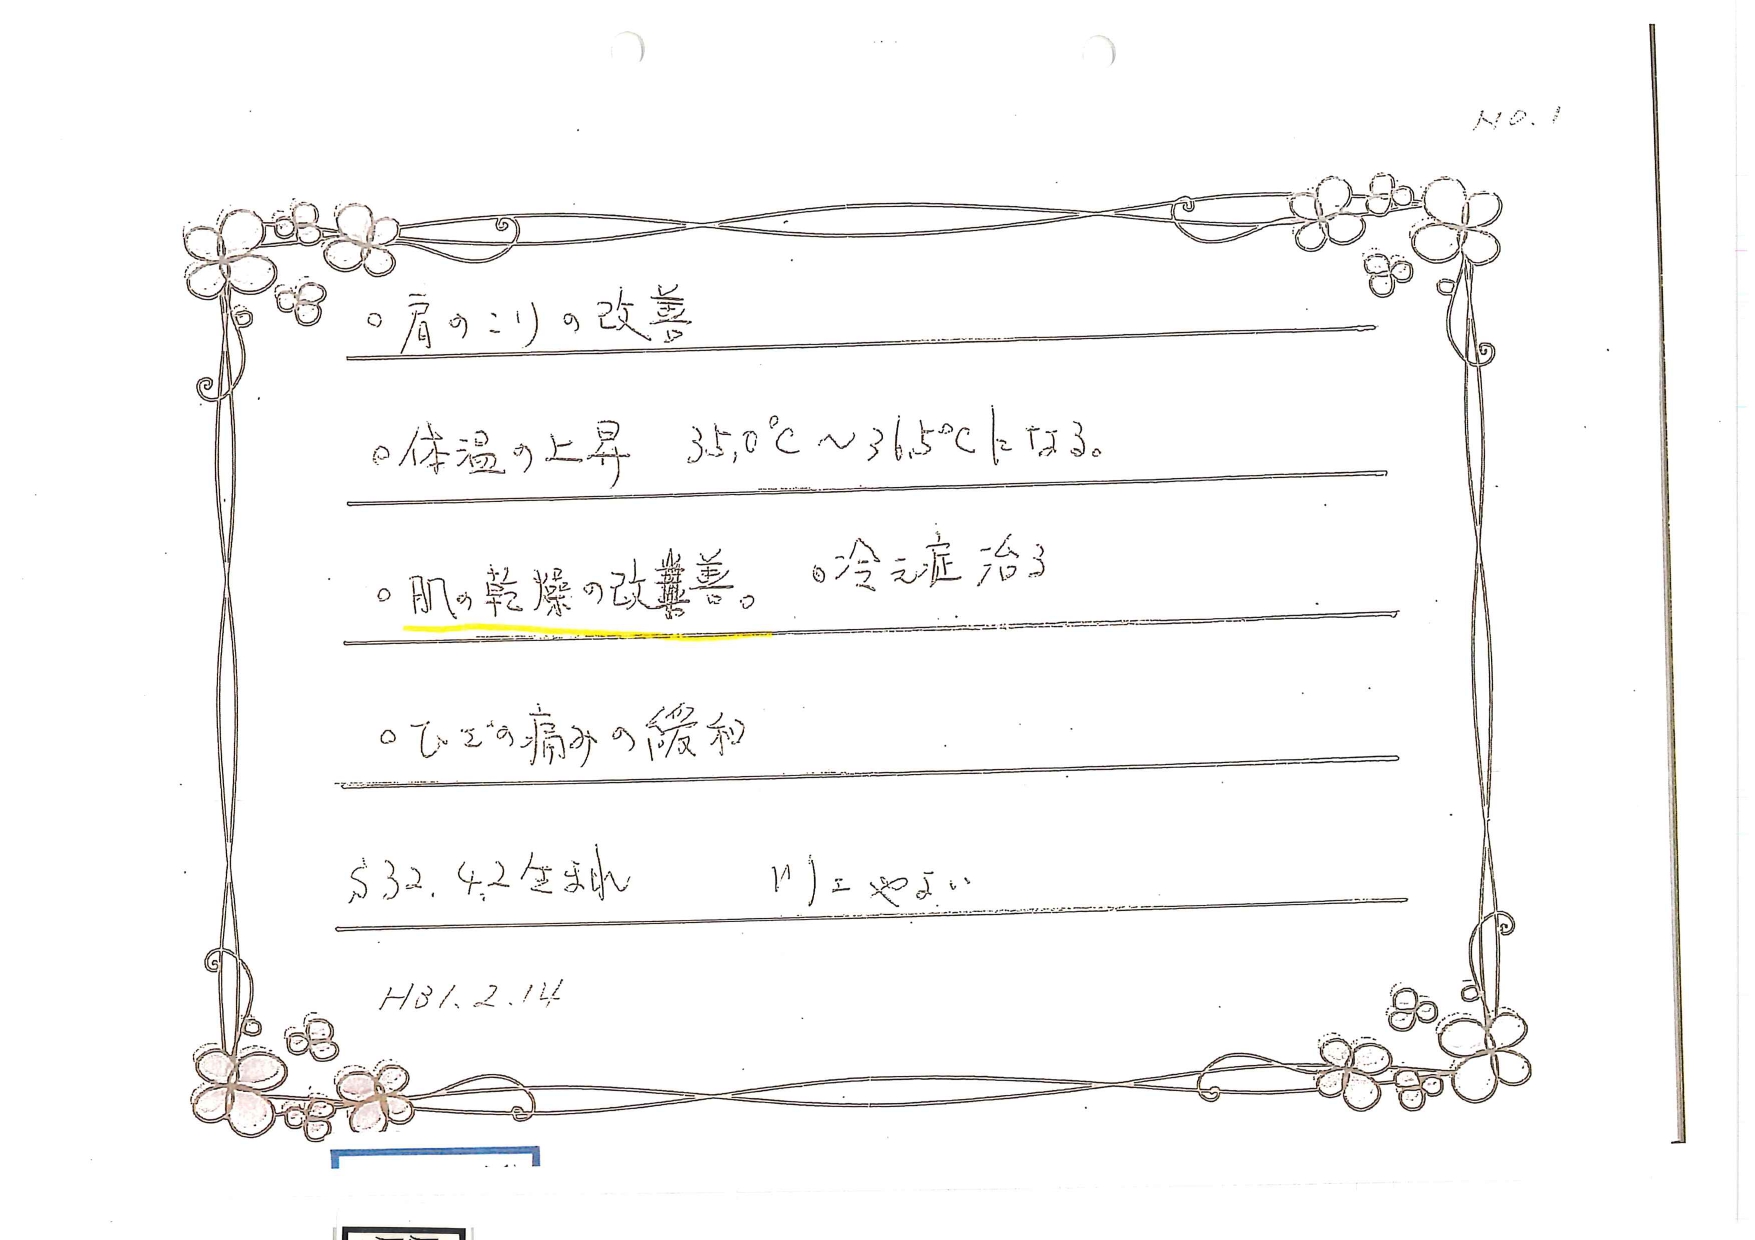 NO.1
○肩のこりの改善
○体温の上昇 35.0℃～36.5℃になる。
○肌の乾燥の改善。 ○冷え症治る
○ひざの痛みの緩和
S32.4.2生まれ やよい
H31.2.14